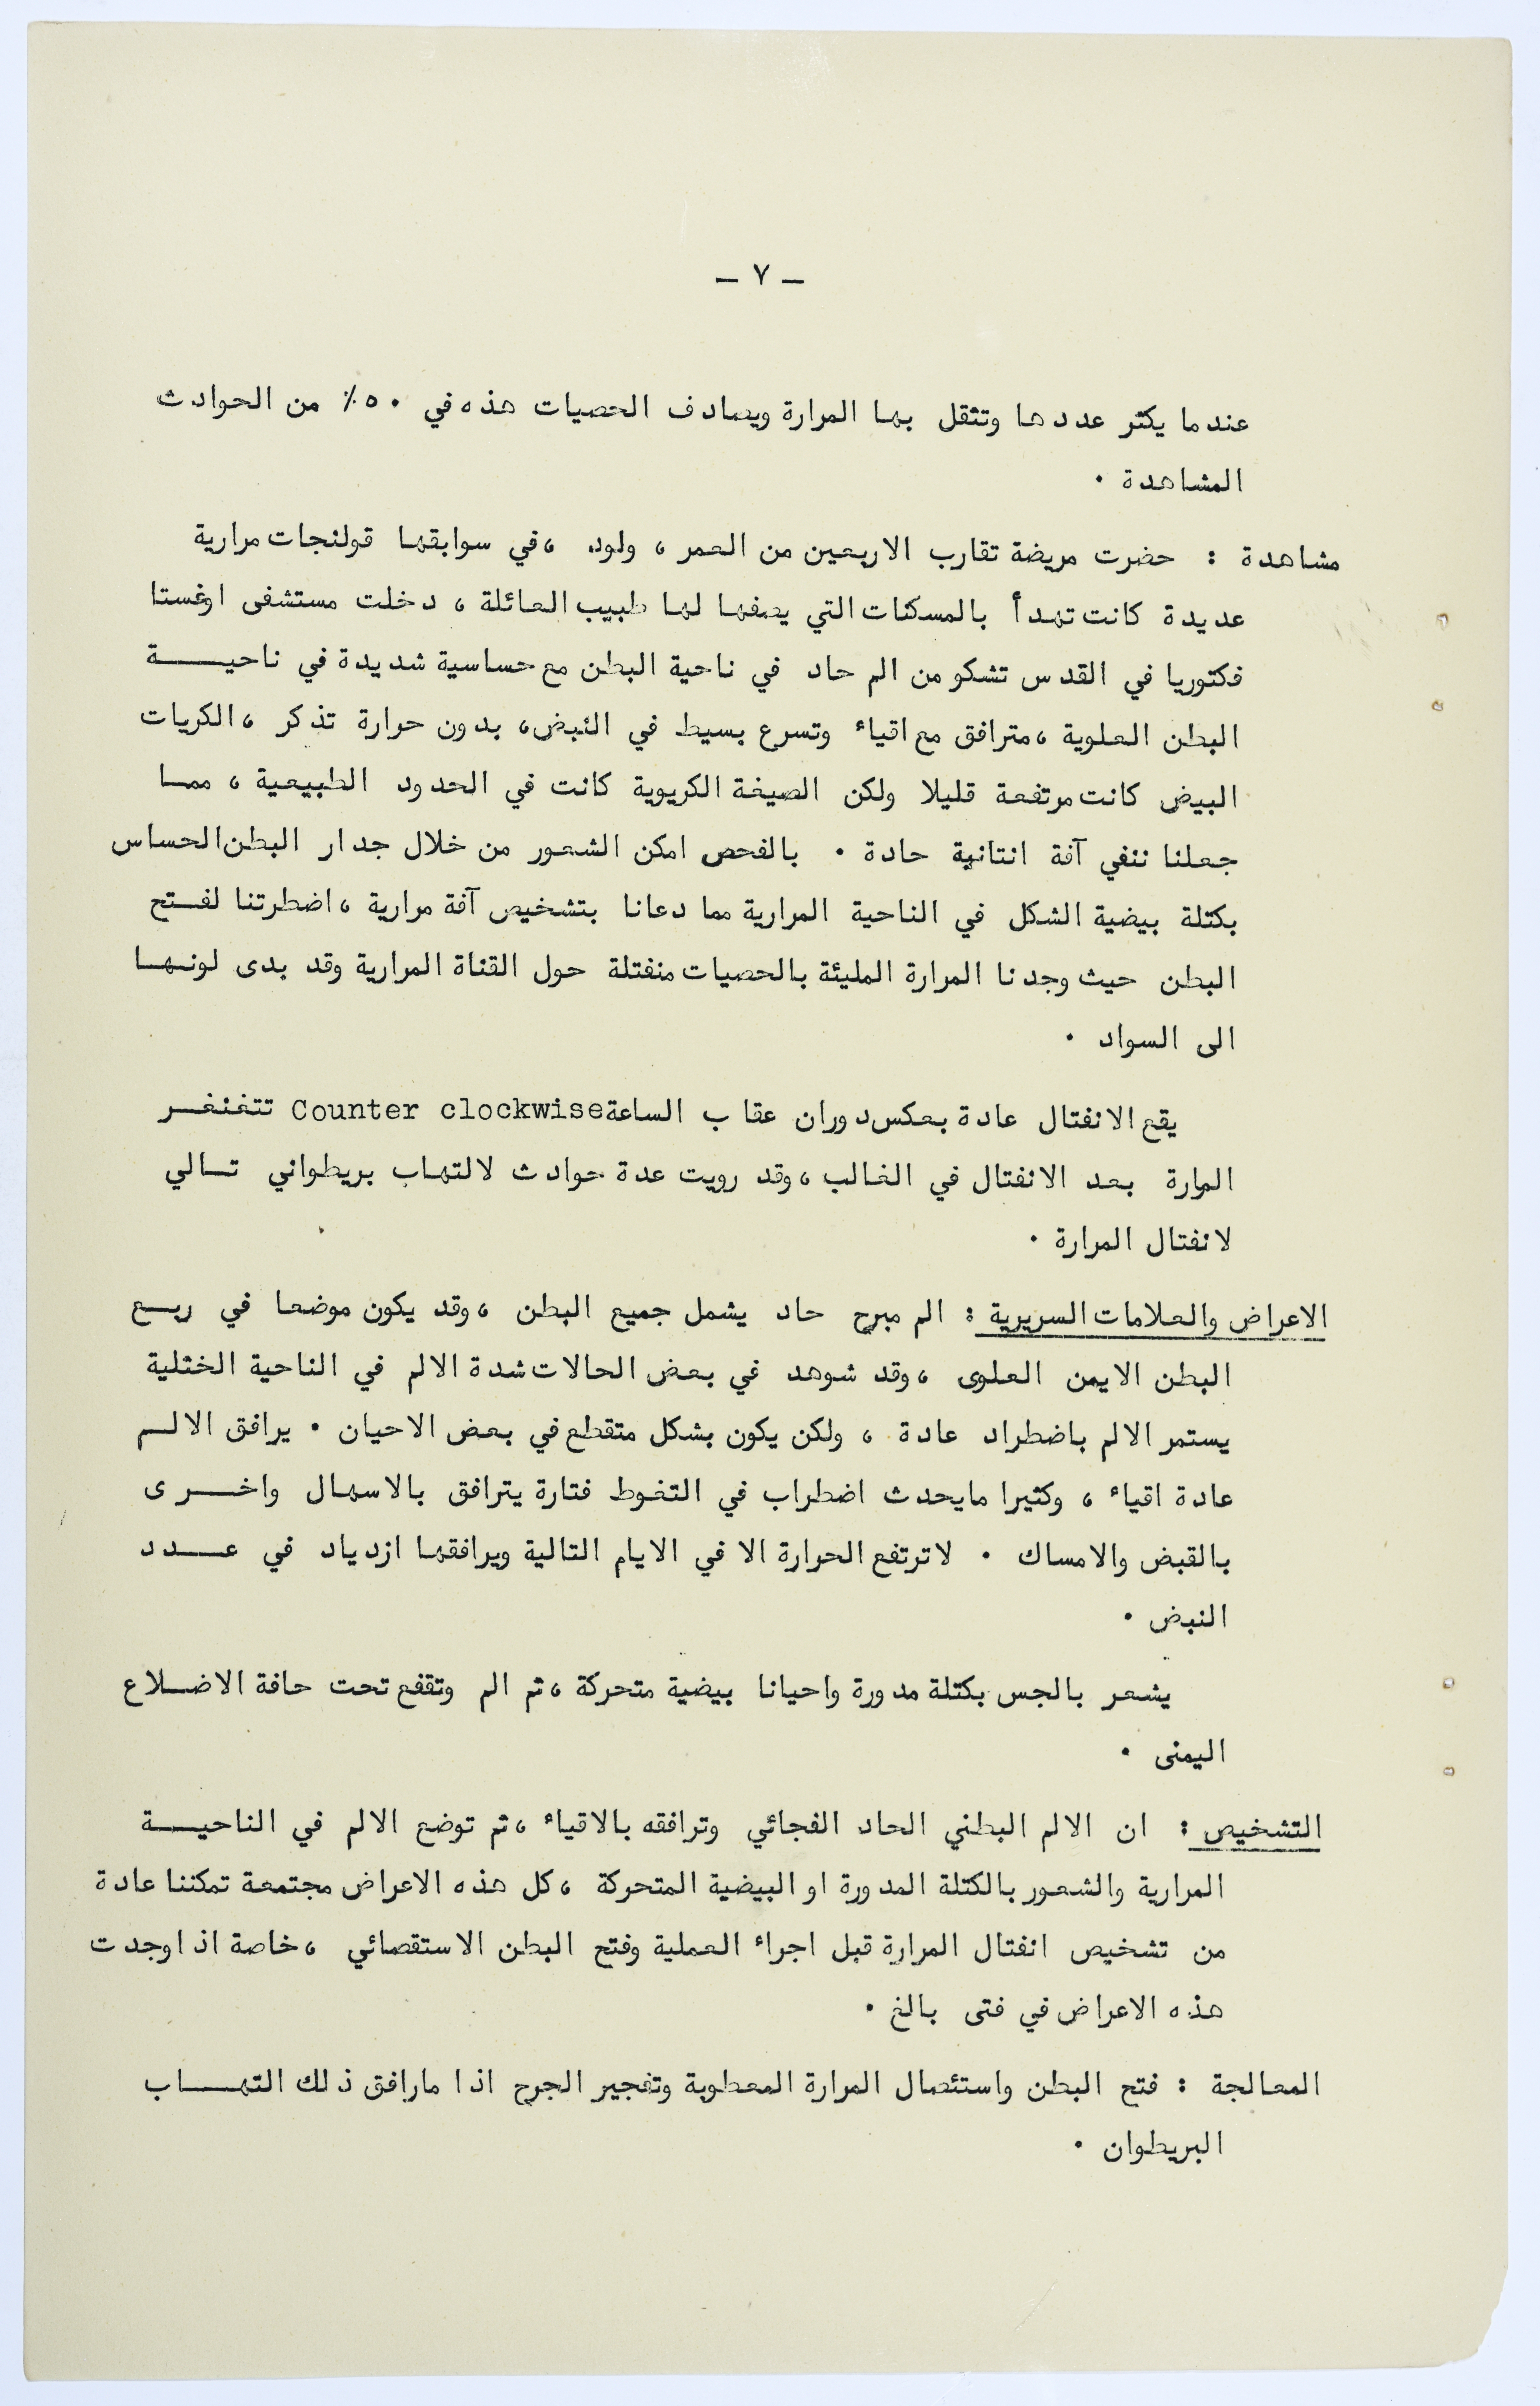 – ٧ –
عندما يكثر عددها وتثقل بها المرارة ويصادف الحصيات هذه في ٥٠٪ من الحوادث
المشاهدة .
مشاهدة : حضرت مريضة تقارب الاربعين من العمر ، ولود ، في سوابقها قولنجات مرارية
عديدة كانت تهدأ بالمسكنات التي يصفها لها طبيب العائلة ، دخلت مستشفى اوغستا
فكتوريا في القدس تشكو من الم حاد في ناحية البطن مع حساسية شديدة في ناحيـــة
البطن العلوية ، مترافق مع اقياء وتسرع بسيط في النبض ، بدون حرارة تذكر ، الكريات
البيض كانت مرتفعة قليلا ولكن الصيغة الكريوية كانت في الحدود الطبيعية ، ممــا
جعلنا ننفي آفة انتانية حادة . بالفحص امكن الشعور من خلال جدار البطن الحساس
بكتلة بيضية الشكل في الناحية المرارية مما دعانا بتشخيص آفة مرارية ، اضطرتنا لفــتح
البطن حيث وجدنا المرارة المليئة بالحصيات منفتلة حول القناة المرارية وقد بدى لونـهــا
الى السواد .
يقع الانفتال عادة بعكس دوران عقاب الساعة Counter clockwise تتغنغــر
المرارة بعد الانفتال في الغالب ، وقد رويت عدة حوادث لالتهاب بريطواني تــالي
لانفتال المرارة .
الاعراض والعلامات السريرية : الم مبرح حاد يشمل جميع البطن ، وقد يكون موضعا في ربــع
البطن الايمن العلوى ، وقد شوهد في بعض الحالات شدة الالم في الناحية الختلية
يستمر الالم باضطراد عادة ، ولكن يكون بشكل متقطع في بعض الاحيان . يرافق الالــم
عادة اقياء ، وكثيرا مايحدث اضطراب في التغوط فتارة يترافق بالاسهال واخـــرى
بالقبض والامساك . لاترتفع الحرارة الا في الايام التالية ويرافقها ازدياد في عـــدد
النبض .
يشعر بالجس بكتلة مدورة واحيانا بيضية متحركة ، ثم الم وتقفع تحت حافة الاضــلاع
اليمنى .
التشخيص : ان الالم البطني الحاد الفجائي وترافقه بالاقياء ، ثم توضع الالم في الناحيـــة
المرارية والشعور بالكتلة المدورة او البيضية المتحركة ، كل هذه الاعراض مجتمعة تمكننا عادة
من تشخيص انفتال المرارة قبل اجراء العملية وفتح البطن الاستقصائي ، خاصة اذا وجدت
هذه الاعراض في فتى بالغ .
المعالجة : فتح البطن واستئصال المرارة المعطوبة وتفجير الجرح اذا مارافق ذلك التهـــاب
البريطوان .